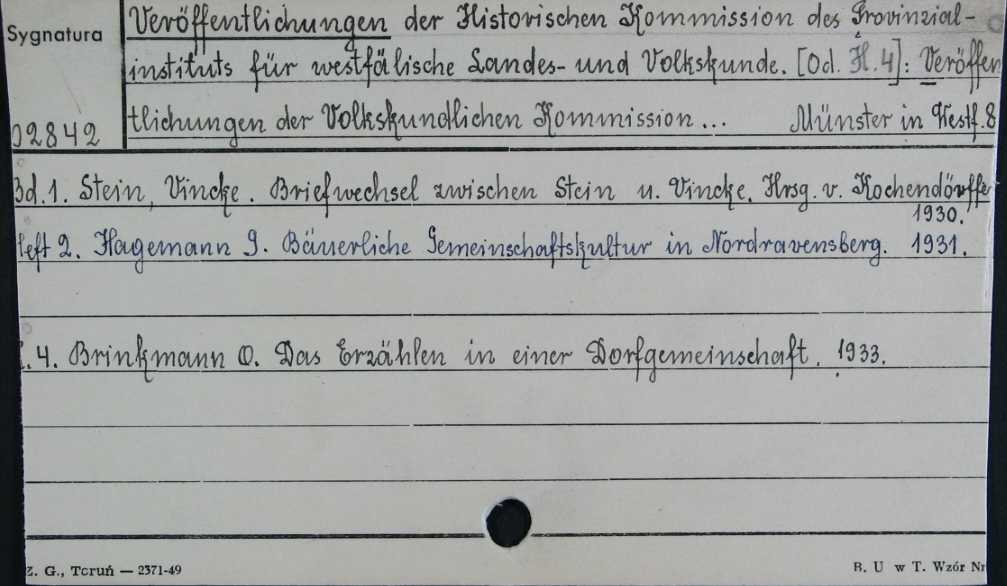 Sygnatura
Veröffentlichungen der Historischen Kommission des Provinzial-
instituts für westfälische Landes- und Volkskunde. [Od. H.4]: Veröffen
02842
tlichungen der Volkskundlichen Kommission... Münster in Westf. 8
Bd.1. Stein, Vincke. Briefwechsel zwischen Stein u. Vincke. Hrsg. v. Kochendörffer
1930.
Heft 2. Hagemann G. Bäuerliche Gemeinschaftskultur in Nordravensberg. 1931.
4. Brinkmann O. Das Erzählen in einer Dorfgemeinschaft. 1933.
Z. G., Toruń — 2371-49
B. U w T. Wzór Nr